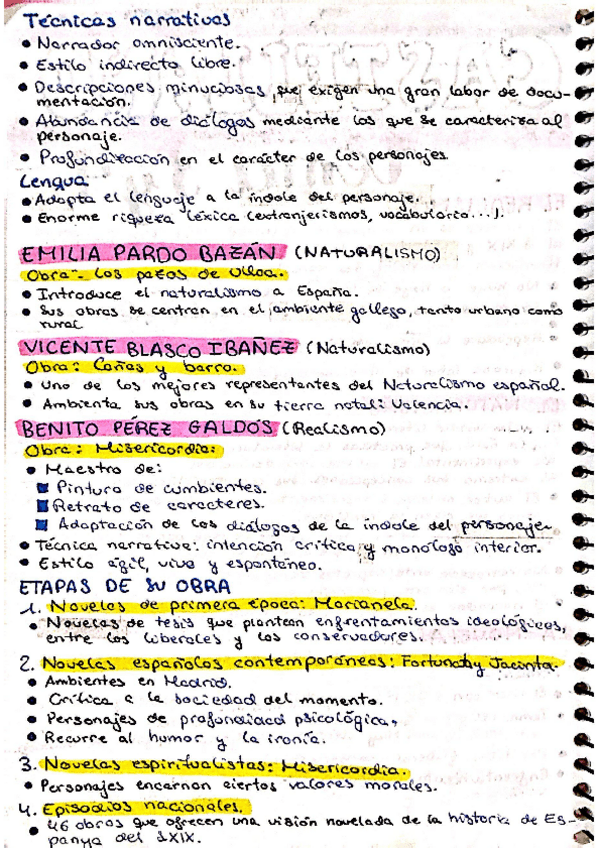 Técnicas narrativas
• Narrador omnisciente.
• Estilo indirecto libre.
• Descripciones minuciosas, que exigen una gran labor de docu-
mentación.
• Abundancia de diálogos mediante los que se caracteriza al
personaje.
• Profundización en el carácter de los personajes
Lengua
• Adapta el lenguaje a la índole del personaje.
• Enorme riqueza léxica (extranjerismos, vocabulario...).
EMILIA PARDO BAZÁN (NATURALISMO)
Obra - Los pazos de Ulloa.
• Introduce el naturalismo a España.
• Sus obras se centran en el ambiente gallego, tanto urbano como
rural
VICENTE BLASCO IBAÑEZ (Naturalismo)
Obra: Cañas y barro.
• Uno de los mejores representantes del Naturalismo español.
• Ambienta sus obras en su tierra natal: Valencia.
BENITO PÉREZ GALDÓS (Realismo)
Obra: Misericordia:
• Maestro de:
Pintura de cumbientes.
Retrato de caracteres.
Adaptación de los diálogos de la índole del personaje.
• Técnica narrativa: intención crítica y monólogo interior.
• Estilo ágil, vivo y espontáneo.
ETAPAS DE SU OBRA
1. Novelas de primera época: Marianela.
• Novelas de tesis que plantean enfrentamientos ideológicos,
entre los liberales y los conservadores.
2. Novelas españolas contemporáneas: Fortunata y Jacinta.
• Ambientes en Madrid.
• Crítica a la sociedad del momento.
• Personajes de profundidad psicológica,
• Recurre al humor y la ironía.
3. Novelas espiritualistas: Misericordia.
• Personajes encarnan ciertos valores morales.
4. Episodios nacionales.
• 46 obras que ofrecen una visión novelada de la historia de Es-
panya del SXIX.